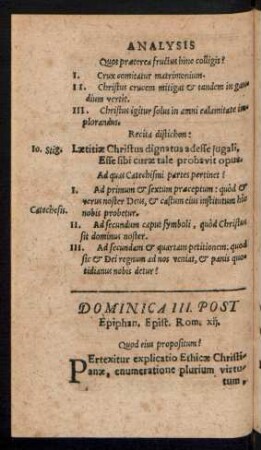 ANALYSIS
Quos præterea fructus hinc colligis?
I. Crux comitatur matrimonium.
II. Christus crucem mitigat & tandem in gau-
dium vertit.
III. Christus igitur solus in omni calamitate im-
plorandus.
Recita distichon?
Io. Stig. Lætitiæ Christus dignatus adesse jugali,
Esse sibi curæ tale probavit opus.
Ad quas Catechismi partes pertinet?
I. Ad primum & sextum præceptum: quòd &
verus noster Deus, & castum eius institutum hîc
Catechesis. nobis probetur.
II. Ad secundum caput symboli, quòd Christus
sit dominus noster.
III. Ad secundam & quartam petitionem: quod
sic & Dei regnum ad nos veniat, & panis quo-
tidianus nobis detur?
DOMINICA III. POST
Epiphan. Epist. Rom. xij.
Quod eius propositum?
Pertexitur explicatio Ethicæ Christi-
anæ, enumeratione plurium virtu-
tum,